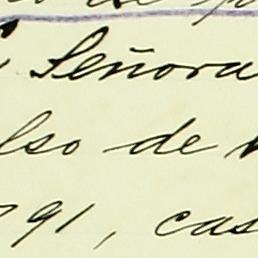 Señora
lso de
91, cas